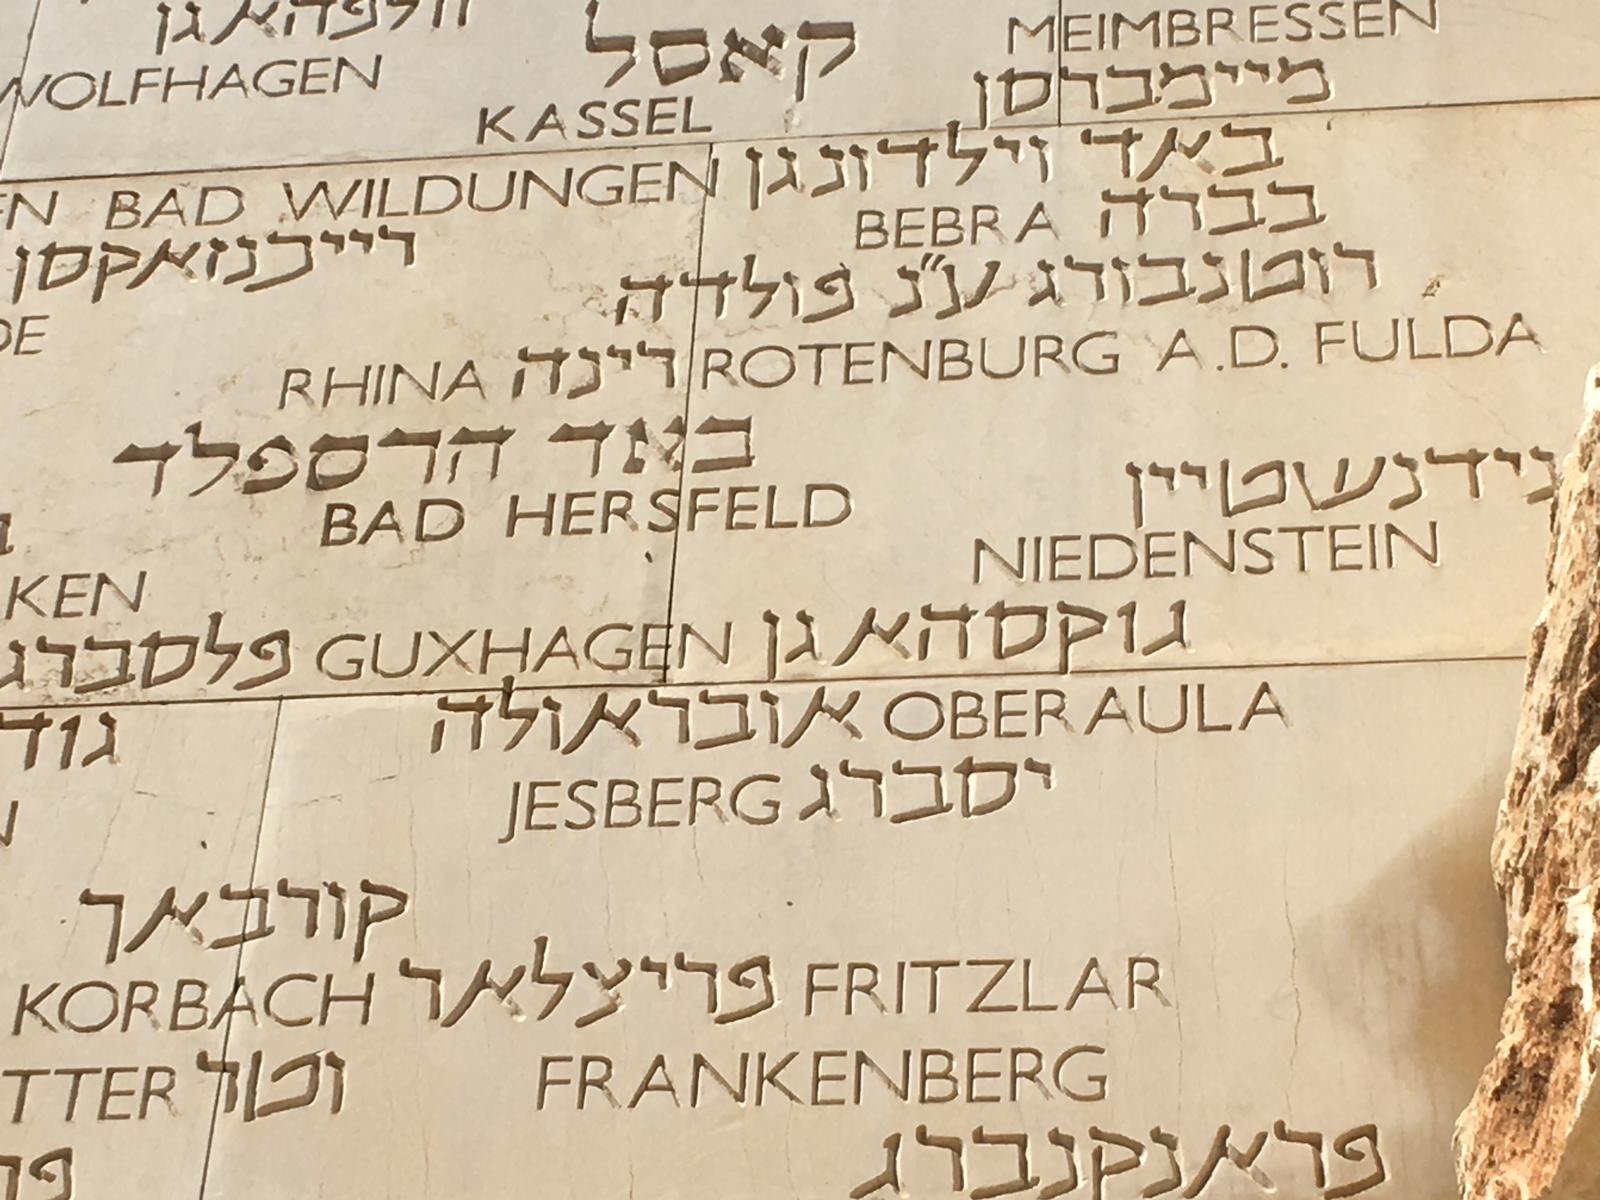 וולפהאגן
WOLFHAGEN
קאסל
KASSEL
MEIMBRESSEN
מיימברסן
BAD WILDUNGEN באד וילדונגן
רייכנזאקסן
BEBRA בברה
רוטנבורג ע"נ פולדה
RHINA רינה ROTENBURG A.D. FULDA
באד הרספלד
BAD HERSFELD
נידנשטיין
NIEDENSTEIN
פלסברג GUXHAGEN גוקסהאגן
אובראולה OBERAULA
JESBERG יסברג
קורבאך
KORBACH פריצלאר FRITZLAR
FRANKENBERG
פראנקנברג